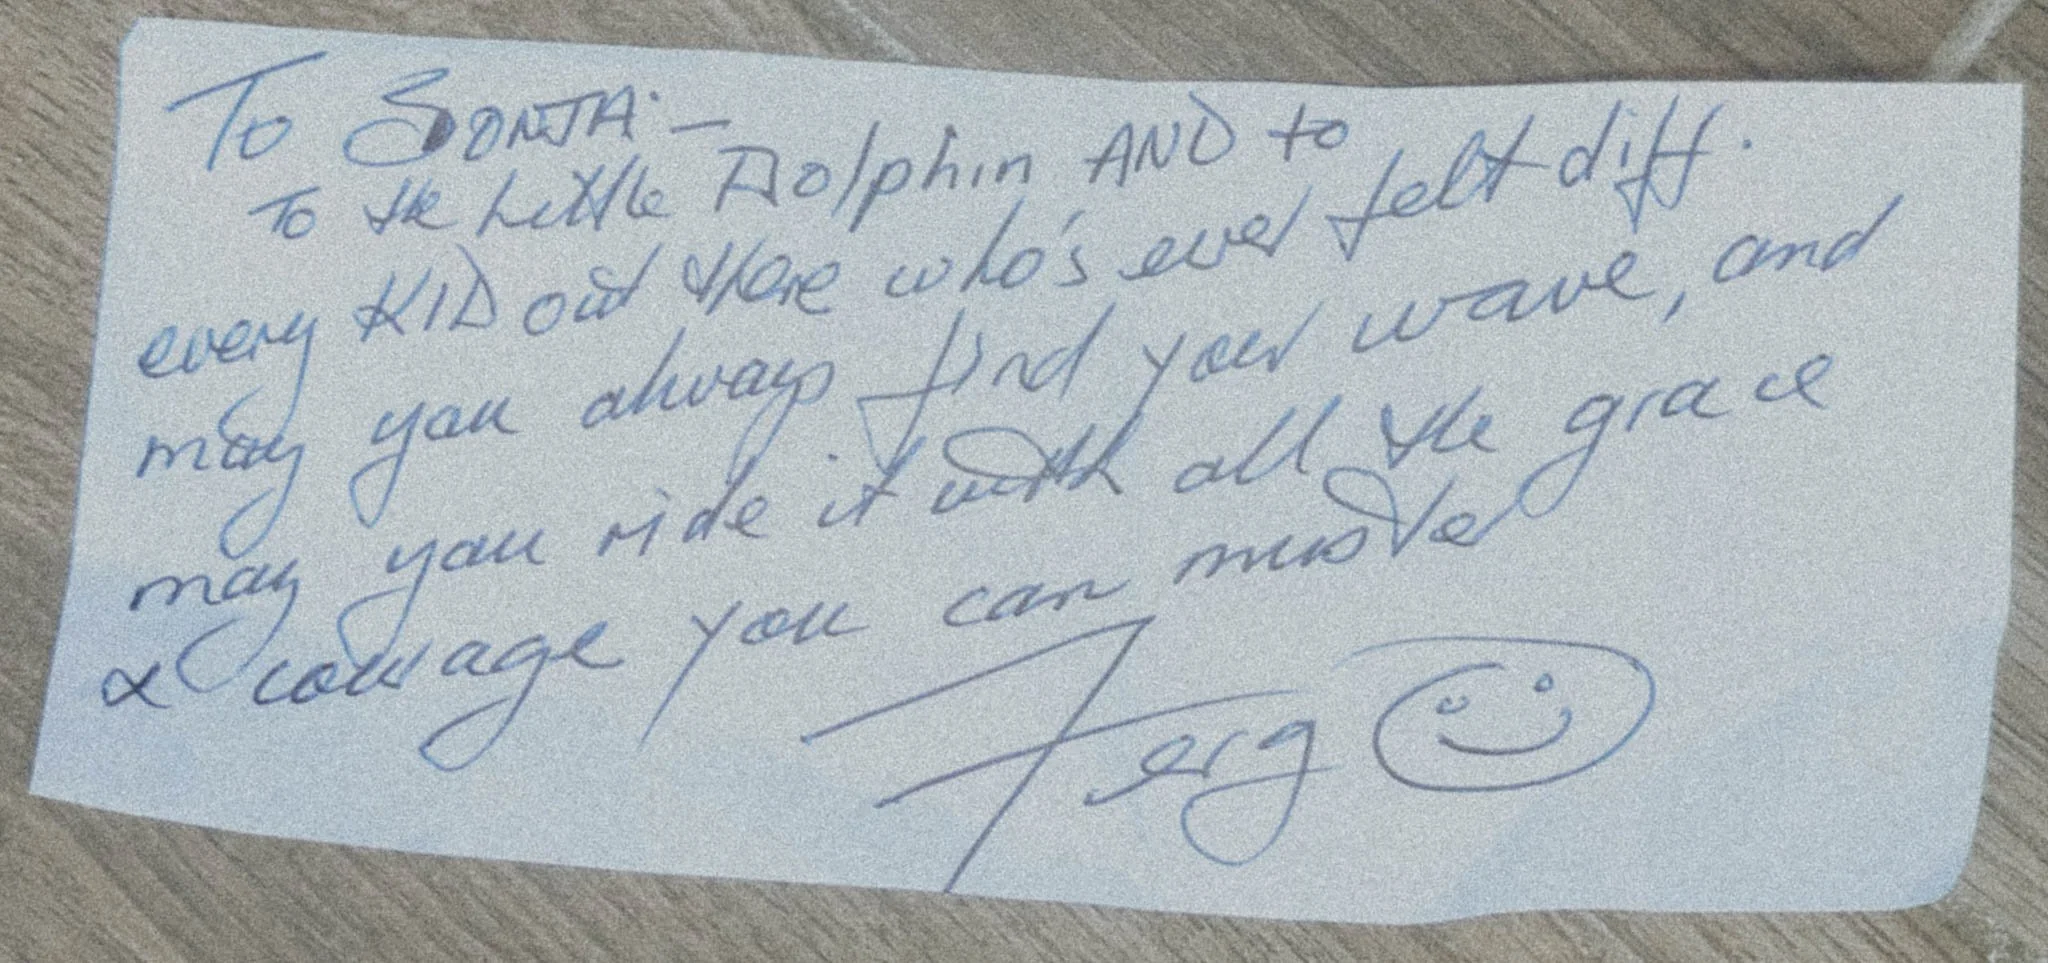 To SONJA. –
To the Little Dolphin AND to
every KID out there who's ever felt diff.
may you always find your wave, and
may you ride it with all the grace
& courage you can muster
Ferg